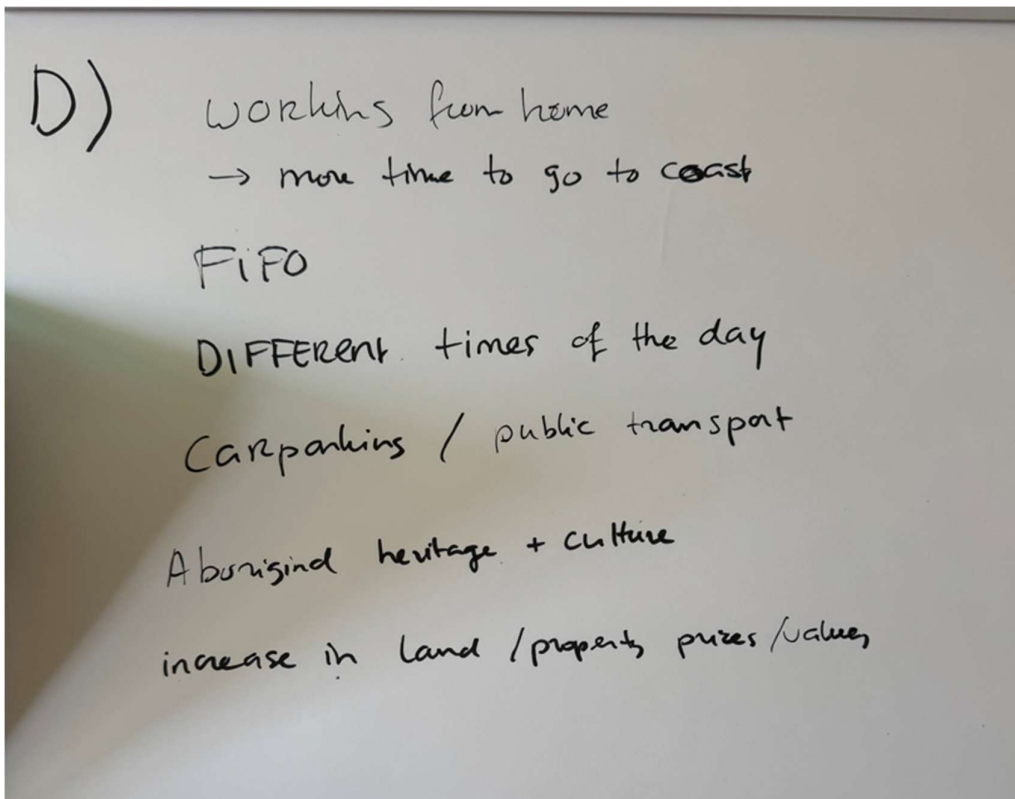 D)
Working from home
→ more time to go to coast
FiFO
DIFFERENT times of the day
Carparking / public transport
Aboriginal heritage + culture
increase in land / property prices / values